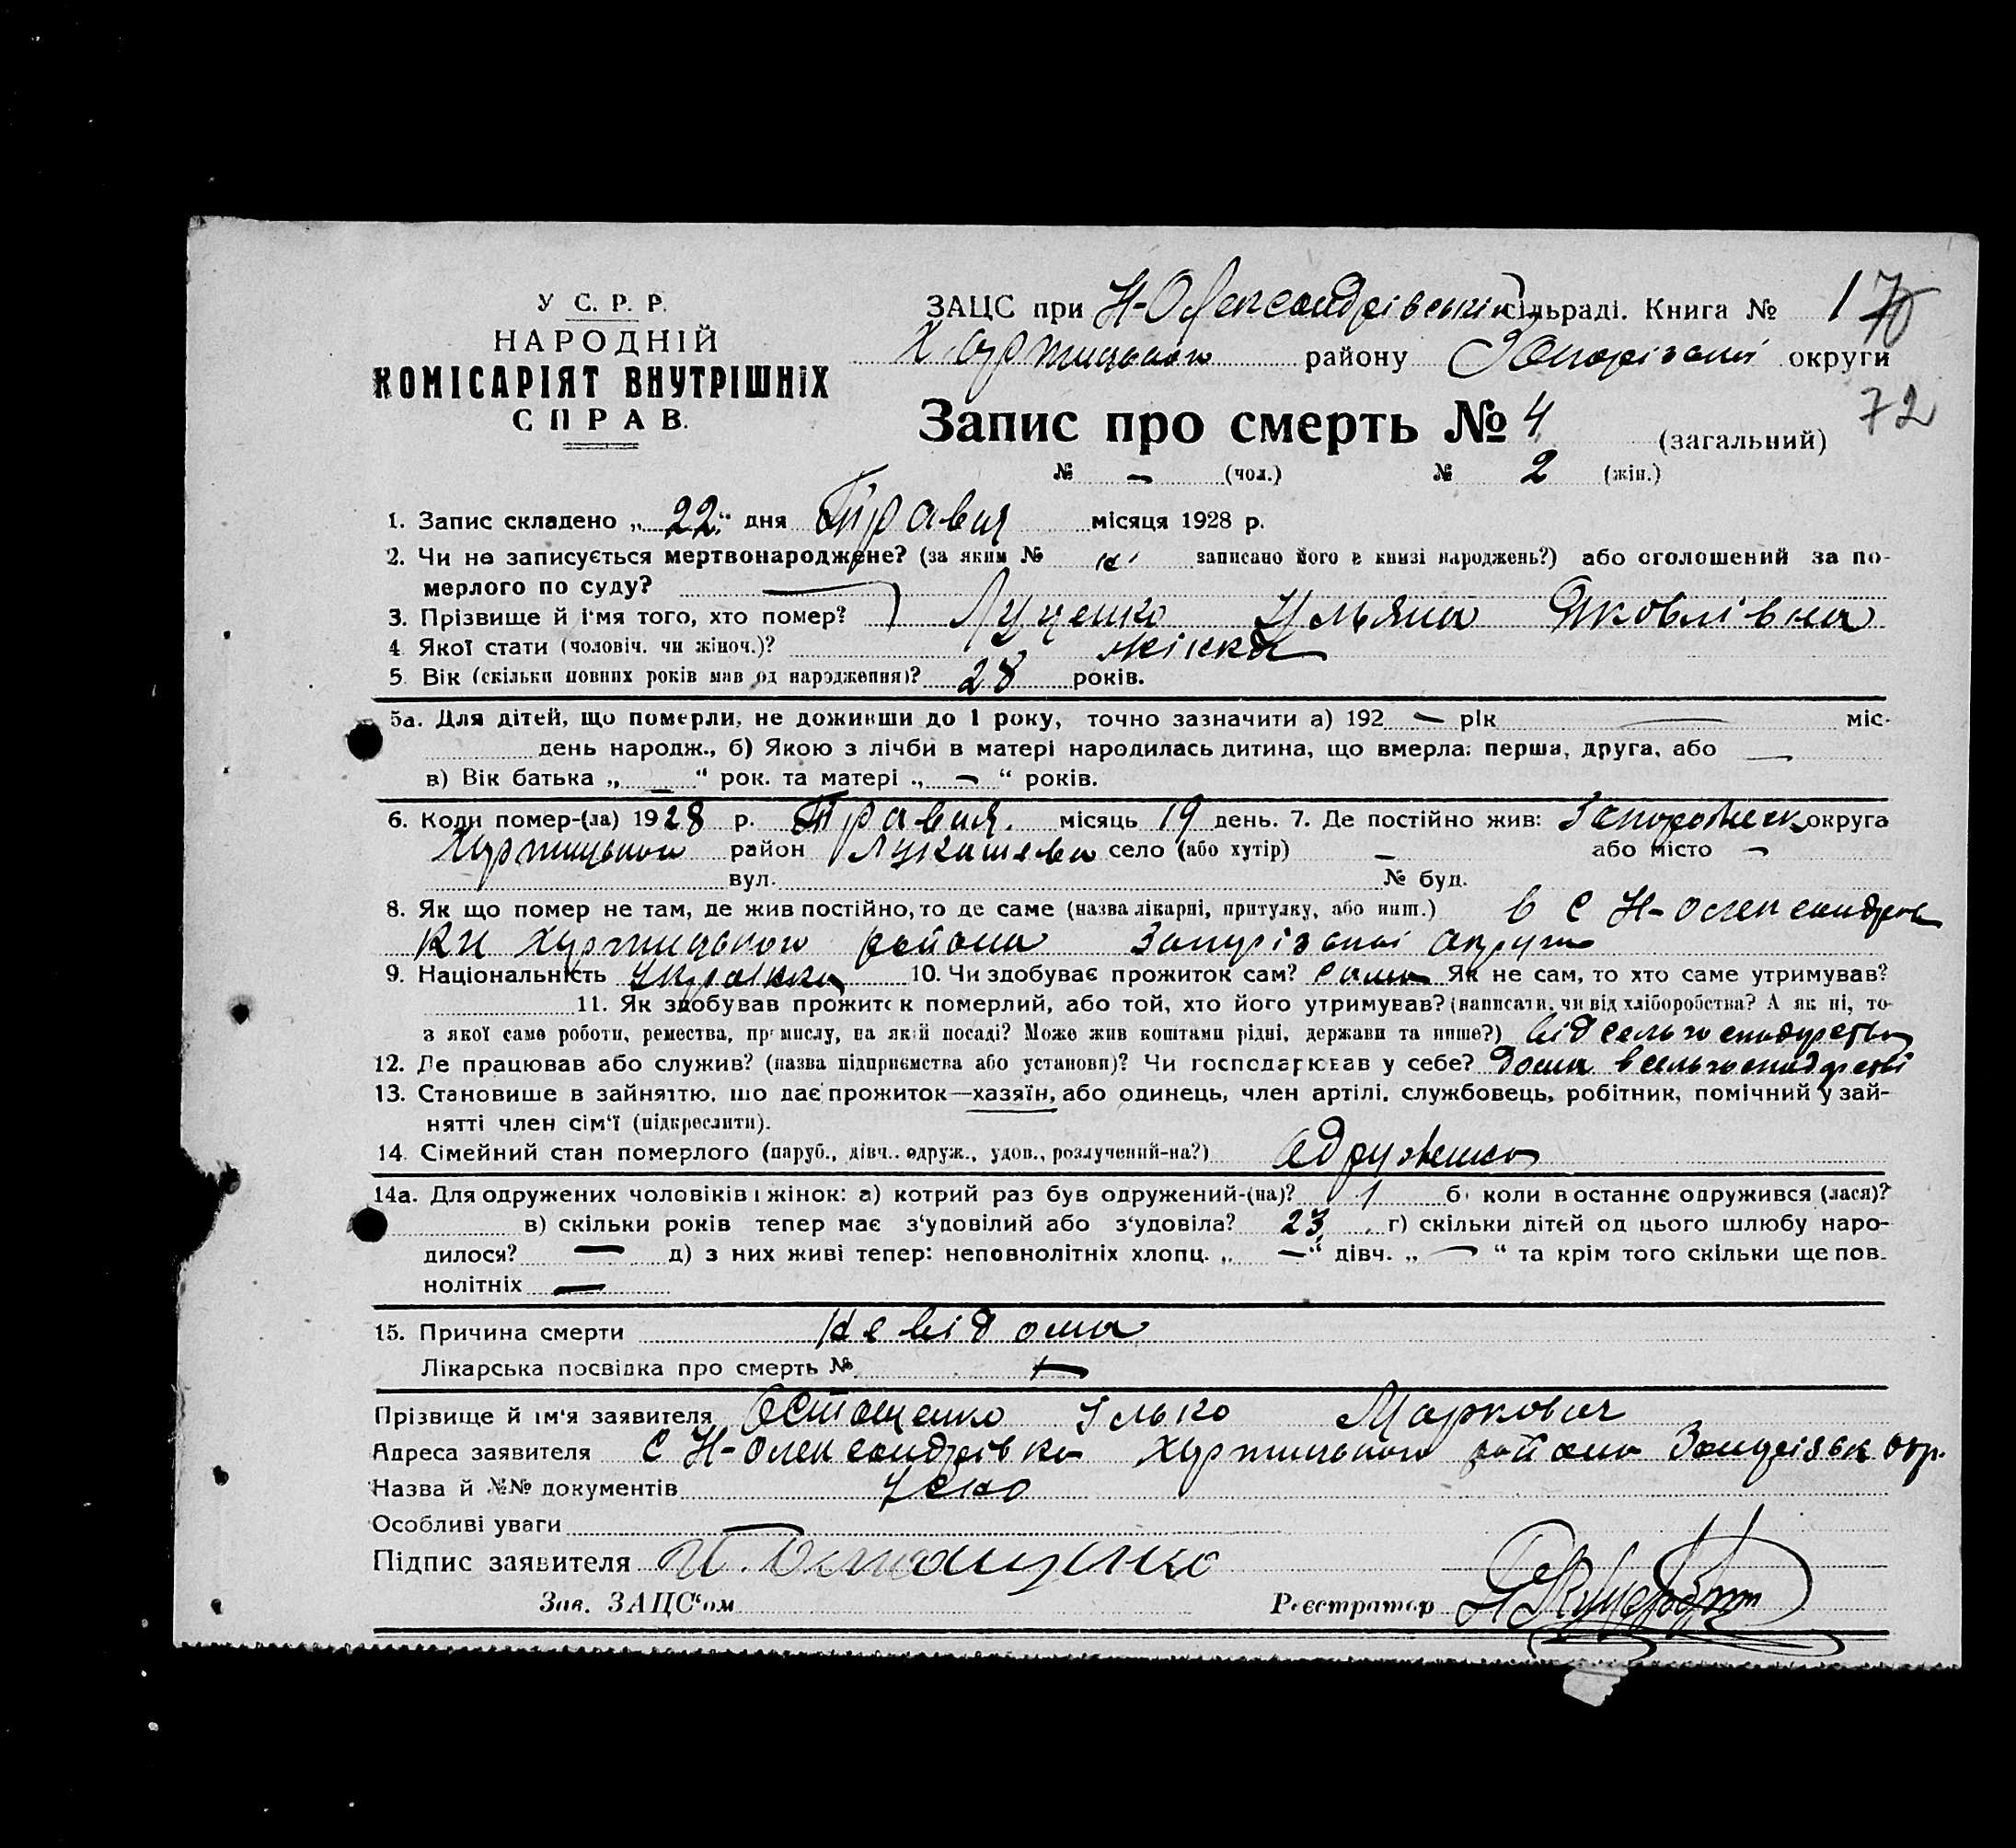 У С. Р. Р.
НАРОДНІЙ
КОМІСАРІЯТ ВНУТРІШНІХ
СПРАВ.
ЗАЦС при Н-Олександрівській сільраді. Книга № 1 70
Хортицького району Запорізької округи
72
Запис про смерть № 4 (загальний)
№ — (чол.) № 2 (жін.)
1. Запис складено „22“ дня Травня місяця 1928 р.
2. Чи не записується мертвонароджене? (за яким № записано його в книзі народжень?) або оголошений за по-
мерлого по суду? —
3. Прізвище й ім'я того, хто помер? Луценко Ульяна Яковлівна
4. Якої статі (чоловіч. чи жіноч.)? жінка
5. Вік (скільки повних років мав од народження)? 28 років.
5а. Для дітей, що померли, не доживши до 1 року, точно зазначити а) 192 — рік — міс.
день народж., б) Якою з лічби в матері народилась дитина, що вмерла: перша, друга, або —
в) Вік батька „ — “ рок. та матері „ — “ років.
6. Коли помер-(ла) 1928 р. Травня місяць 19 день. 7. Де постійно жив: округа
Хортицького район Лукашева село (або хутір) — або місто —
вул. № буд.
8. Як що помер не там, де жив постійно, то де саме (назва лікарні, притулку, або инш.) в с Н-Олександрів
ки Хортицького района Запорізької округи
9. Національність Українка 10. Чи здобуває прожиток сам? сама Як не сам, то хто саме утримував?
11. Як здобував прожиток померлий, або той, хто його утримував? (написати, чи від хліборобства? А як ні, то
з якої саме роботи, ремества, промислу, на якій посаді? Може жив коштами рідні, держави та инше?) від
12. Де працював або служив? (назва підприємства або установи)? Чи господарював у себе? дома в
13. Становище в зайняттю, що дає прожиток—хазяїн, або одинець, член артілі, службовець, робітник, помічний у зай-
нятті член сім'ї (підкреслити).
14. Сімейний стан померлого (паруб., дівч.. одруж., удов., розлучений-на?) одружена
14а. Для одружених чоловіків і жінок: а) котрий раз був одружений-(на)? 1 б) коли в останнє одружився (лася)?
в) скільки років тепер має з'удовілий або з'удовіла? 23 г) скільки дітей од цього шлюбу наро-
дилося? — д) з них живі тепер: неповнолітніх хлопц. „ — “ дівч. „ — “ та крім того скільки ще пов.
нолітніх —
15. Причина смерти невідома
Лікарська посвідка про смерть № —
Прізвище й ім'я заявителя Остащенко Ілько Маркович
Адреса заявителя с Н-Олександрівка Хортицького района Запорізьк окр.
Назва й №№ документів
Особливі уваги —
Підпис заявителя Остащенко
Зав. ЗАЦС'ом Реєстратор